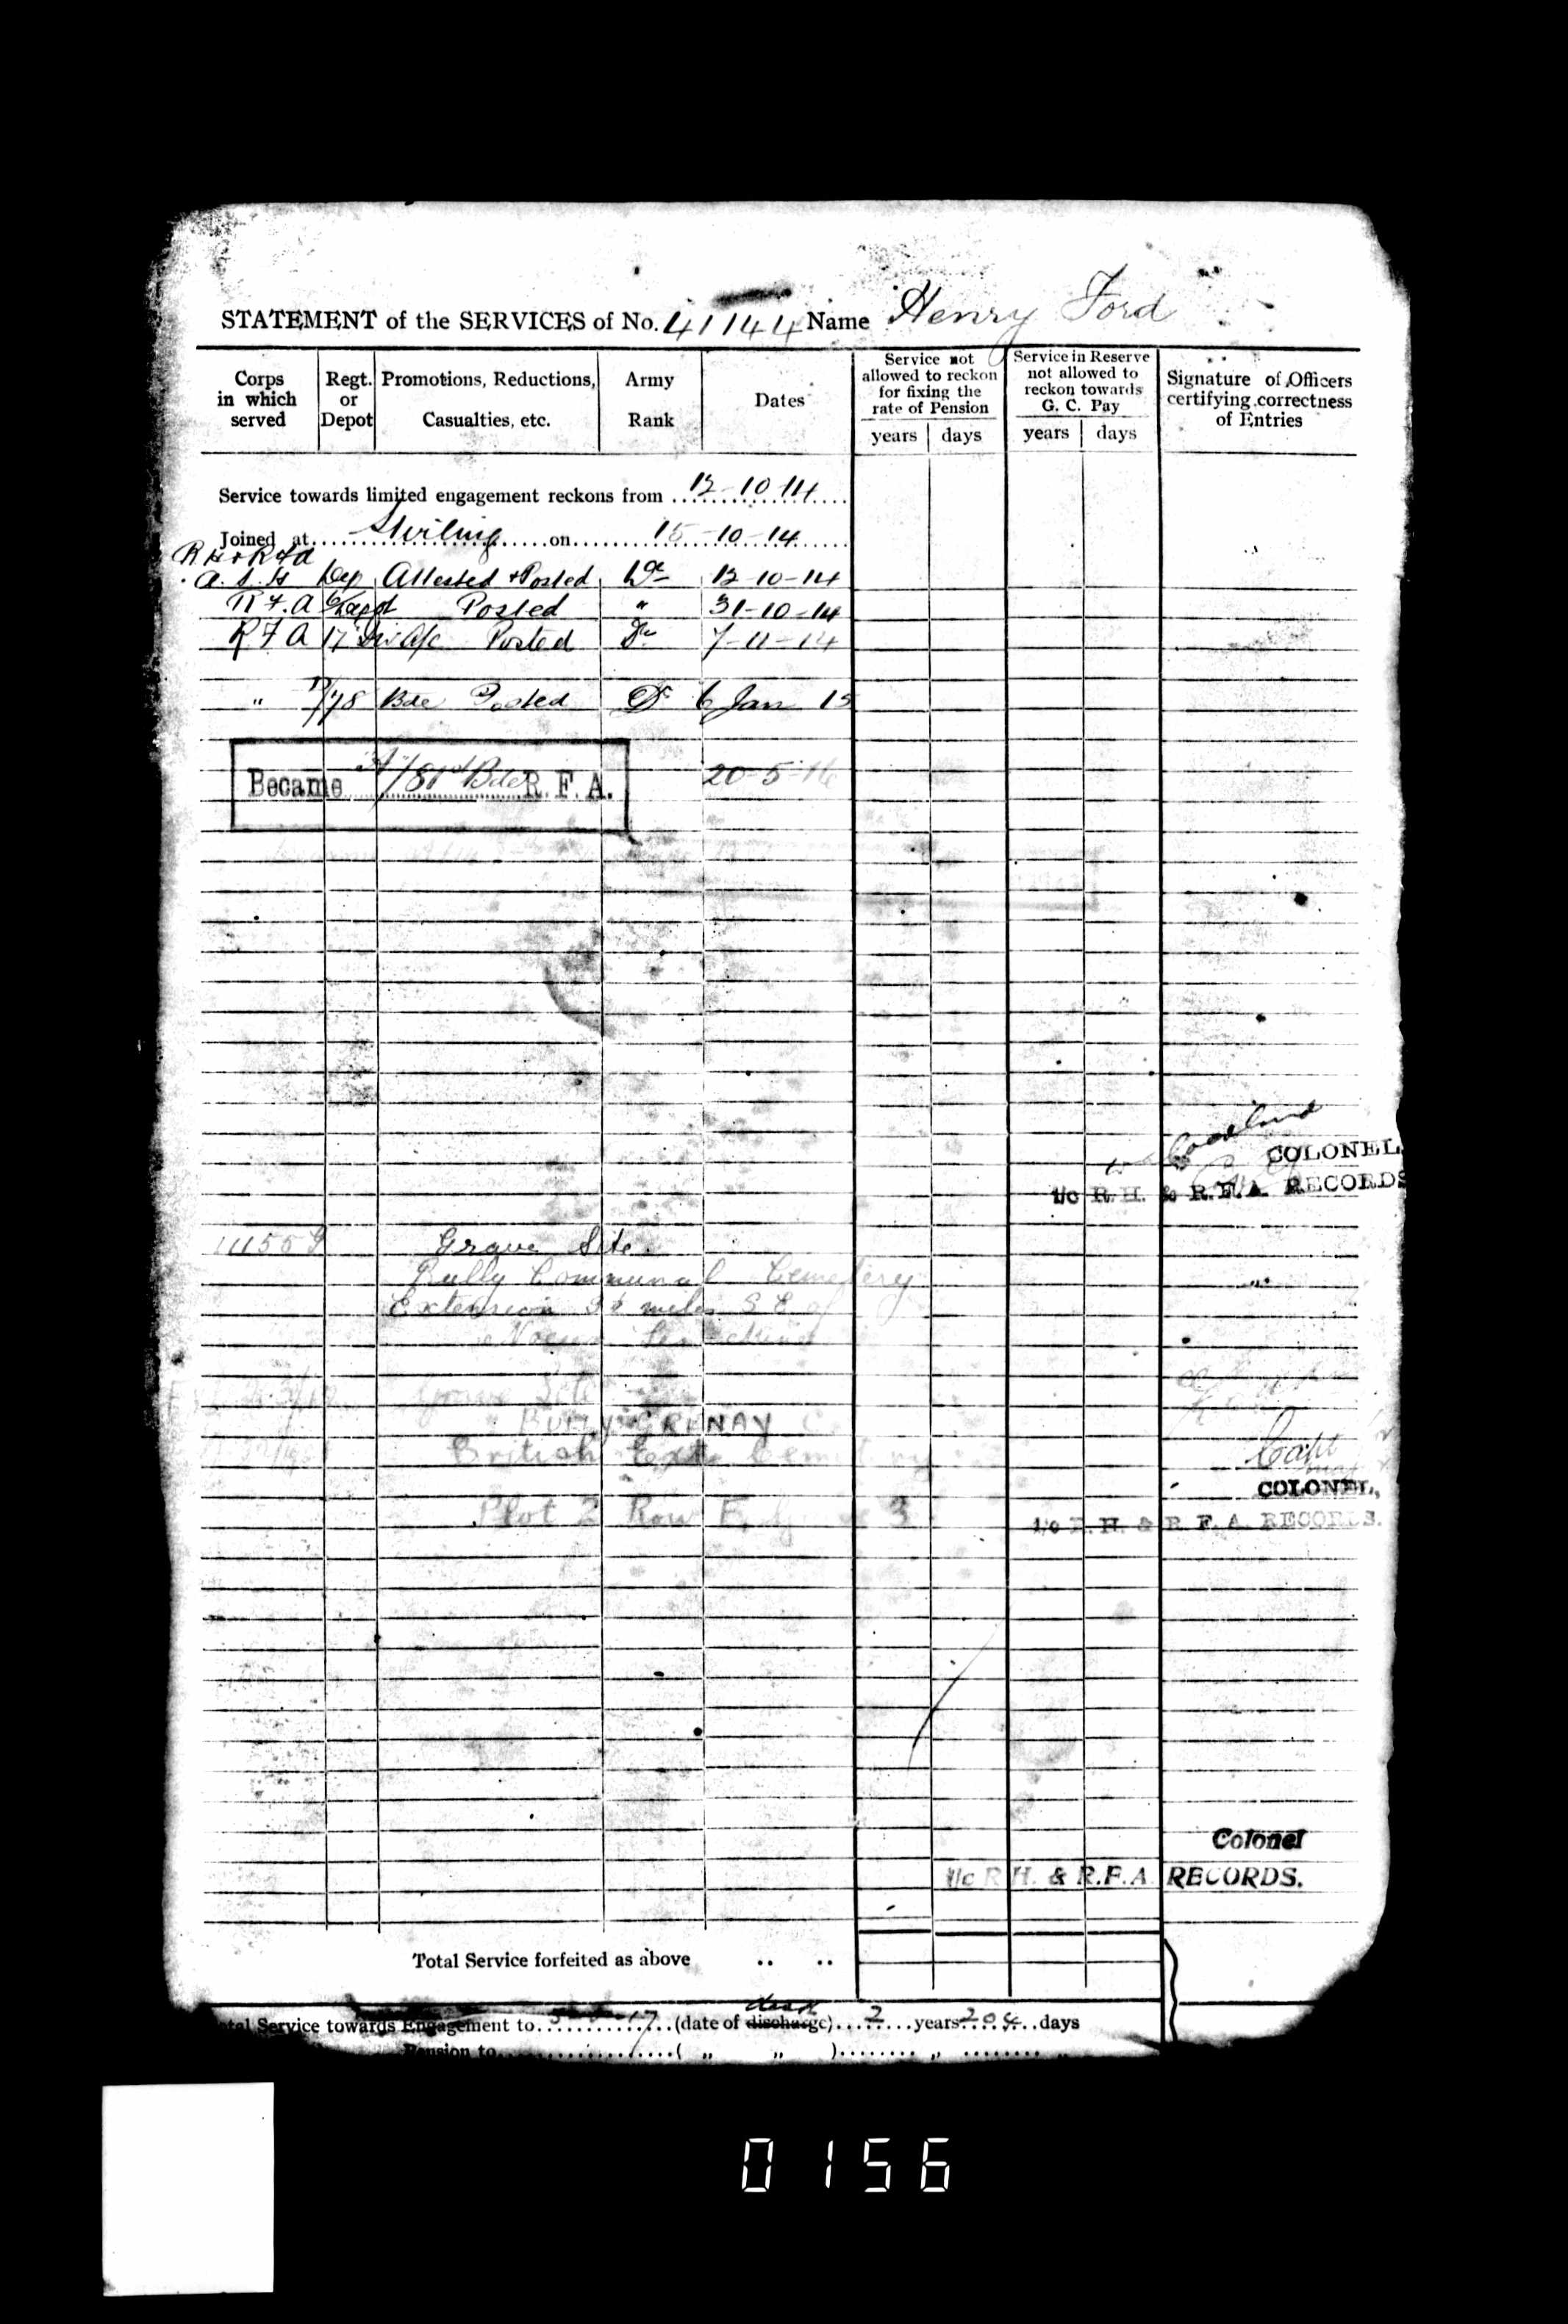 STATEMENT of the SERVICES of No. 41144 Name Henry Ford
Corps in which served
Regt. or Depot
Promotions, Reductions, Casualties, etc.
Army Rank
Dates
Service not allowed to reckon for fixing the rate of Pension
years days
Service in Reserve not allowed to reckon towards G. C. Pay
years days
Signature of Officers certifying correctness of Entries
Service towards limited engagement reckons from 12-10-14
Joined at Stirling on 15-10-14
R H & R F A
Dep Attested & Posted 12-10-14
R F. A Posted " 31-10-14
R F A 17 Posted Dr 7-11-14
" /78 Bde Posted Dr 6 Jan 15
Became /81st Bde R. F. A. 20-5-16
COLONEL,
i/c R.H. & R.F.A. RECORDS
Grave Site.
Bully Communal Cemetery
Extension miles S E of
Noeux
Grave Site
BULLY GRENAY C
British Extn Cemetery
Capt
COLONEL,
Plot 2 Row E, 3
i/c R.H. & R.F.A. RECORDS.
Colonel
i/c R.H. & R.F.A. RECORDS.
Total Service forfeited as above
Total Service towards Engagement to 17 (date of discharge) death 2 years 204 days
Pension to ( " " ) "
0156